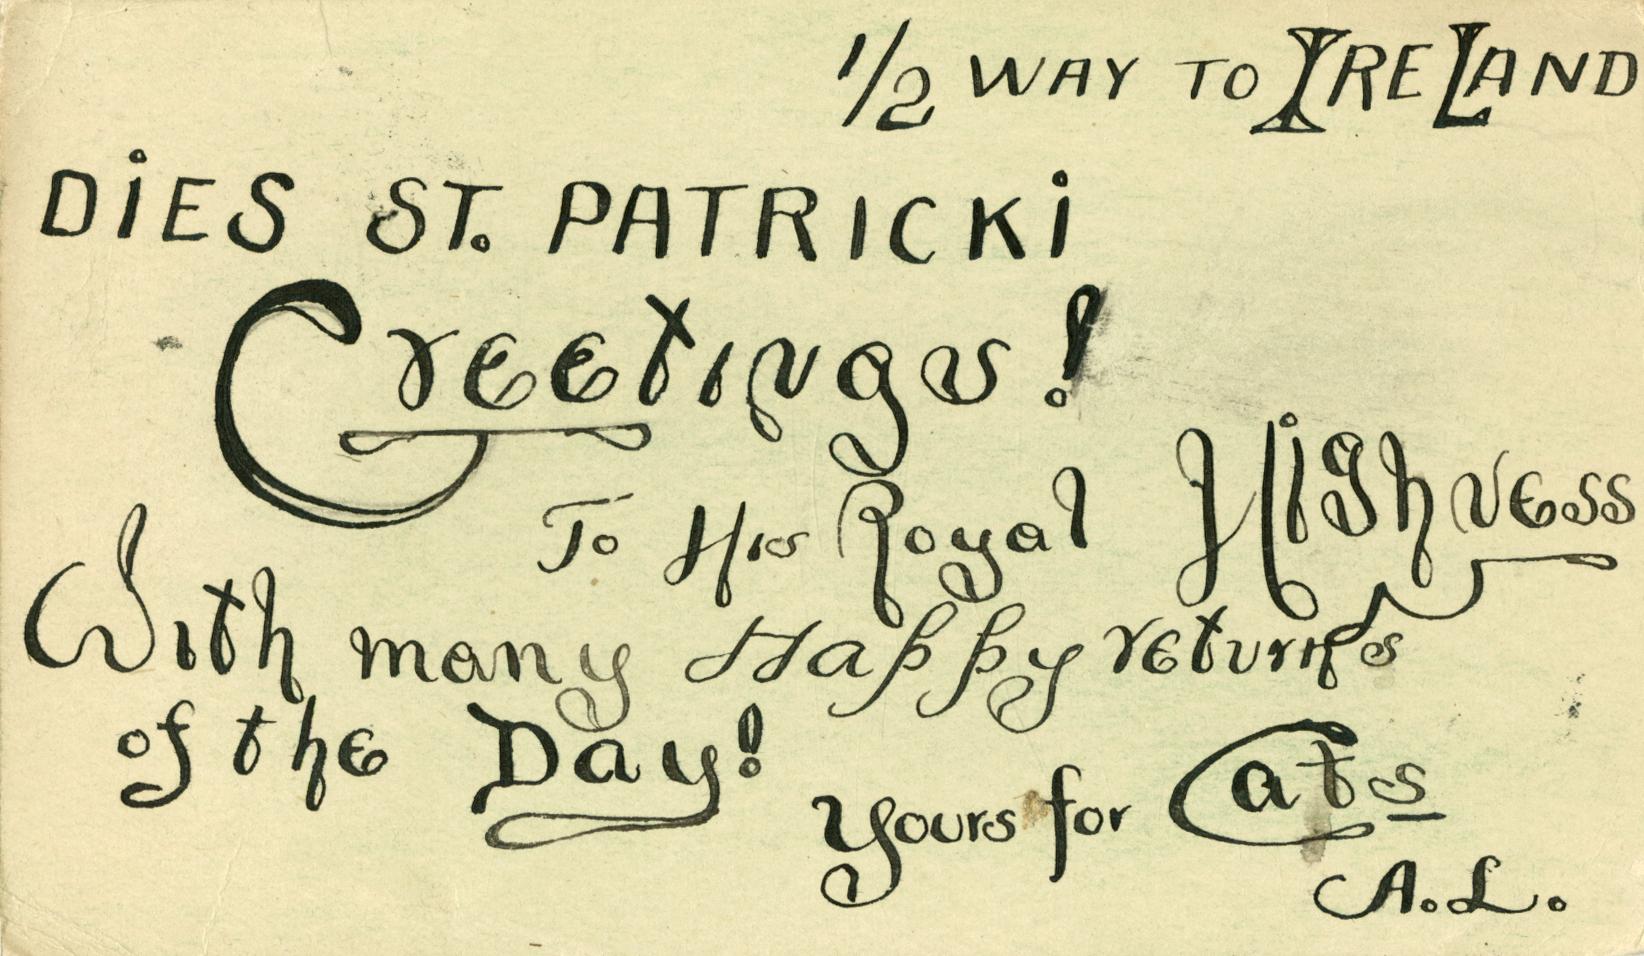 1/2 WAY TO IRELAND
DiES ST. PATRICKi
Greetings!
To His Royal Highness
With many Happy returns
of the Day!
Yours for Cats
A.L.